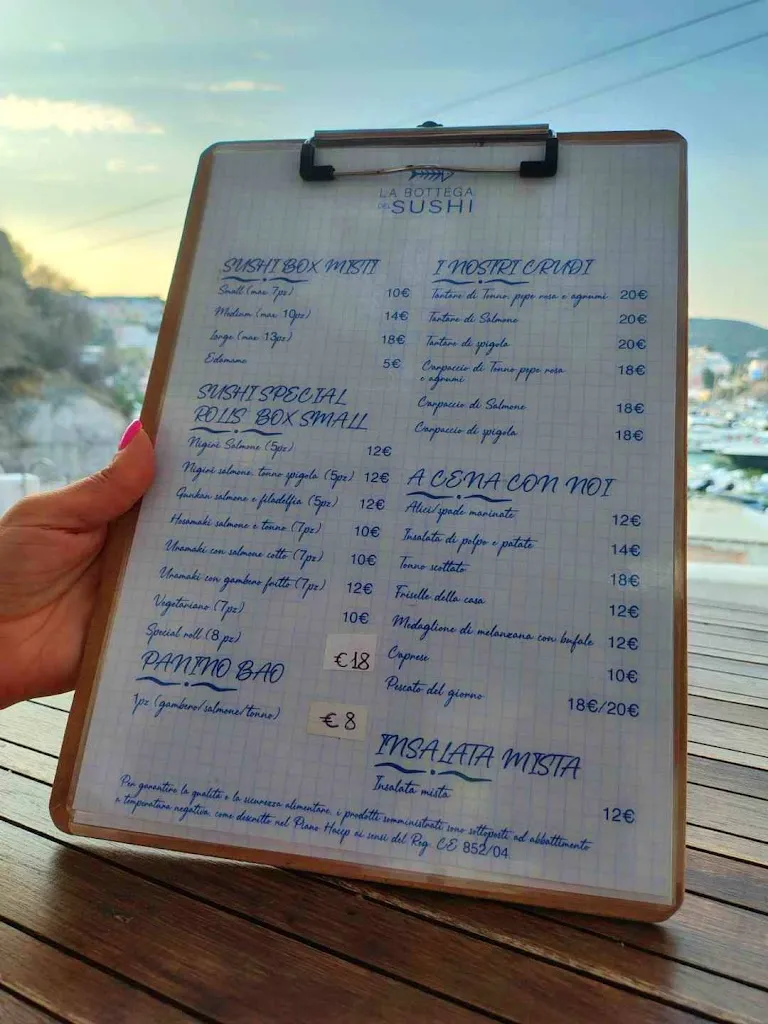 LA BOTTEGA
DEL SUSHI
SUSHI BOX MISTI
Small (max 7pz) 10€
Medium (max 10pz) 14€
Large (max 13pz) 18€
Edamame 5€
SUSHI SPECIAL
ROLLS BOX SMALL
Nigiri Salmone (5pz) 12€
Nigiri salmone, tonno spigola (5pz) 12€
Gunkan salmone e filadelfia (5pz) 12€
Hosomaki salmone e tonno (7pz) 10€
Uramaki con salmone cotto (7pz) 10€
Uramaki con gambero fritto (7pz) 12€
Vegetariano (7pz) 10€
Special roll (8pz) €18
PANINO BAO
1pz (gambero/salmone/tonno) €8
I NOSTRI CRUDI
Tartare di Tonno, pepe rosa e agrumi 20€
Tartare di Salmone 20€
Tartare di spigola 20€
Carpaccio di Tonno pepe rosa 18€
e agrumi
Carpaccio di Salmone 18€
Carpaccio di spigola 18€
A CENA CON NOI
Alici/spade marinate 12€
Insalata di polpo e patate 14€
Tonno scottato 18€
Friselle della casa 12€
Medaglione di melanzana con bufale 12€
Caprese 10€
Pescato del giorno 18€/20€
INSALATA MISTA
Insalata mista 12€
Per garantire la qualità e la sicurezza alimentare, i prodotti somministrati sono sottoposti ad abbattimento
a temperatura negativa, come descritto nel Piano Haccp ai sensi del Reg. CE 852/04.